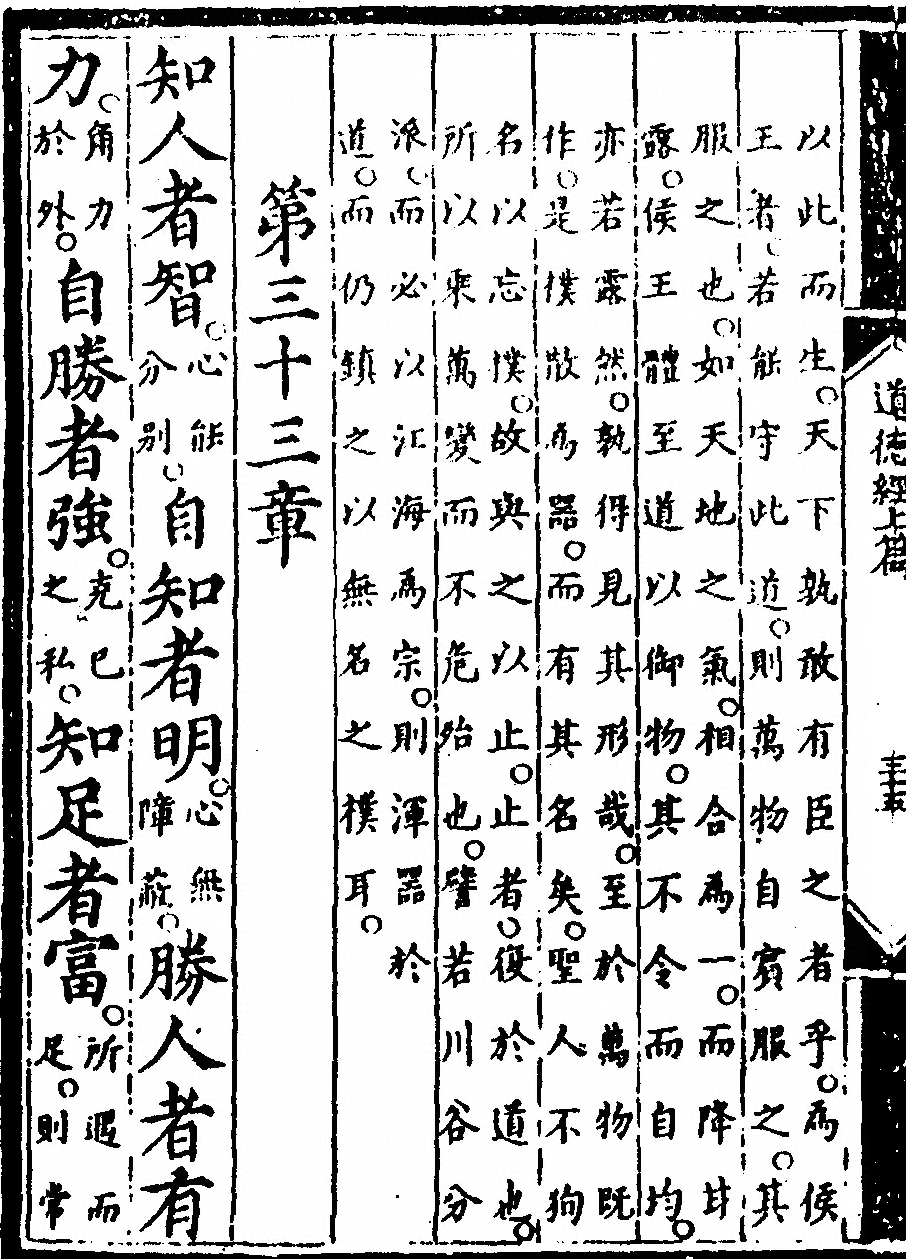 道德經上篇
三十五
以此而生。天下孰敢有臣之者乎。爲侯
王者、若能守此道、則萬物自賓服之。其
服之也。如天地之氣。相合爲一。而降甘
露。侯王體至道以御物。其不令而自均。
亦若露然。孰得見其形哉。至於萬物既
作。是樸散爲器。而有其名矣。聖人不狥
名以忘樸。故與之以止。止者。復於道也。
所以乘萬變而不危殆也。譬若川谷分
派。而必以江海爲宗。則渾器於
道。而仍鎮之以無名之樸耳。
第三十三章
知人者智。心能分別。自知者明。心無障蔽。勝人者有
力。角力於外。自勝者強。克己之私。知足者富。所遇而足。則常